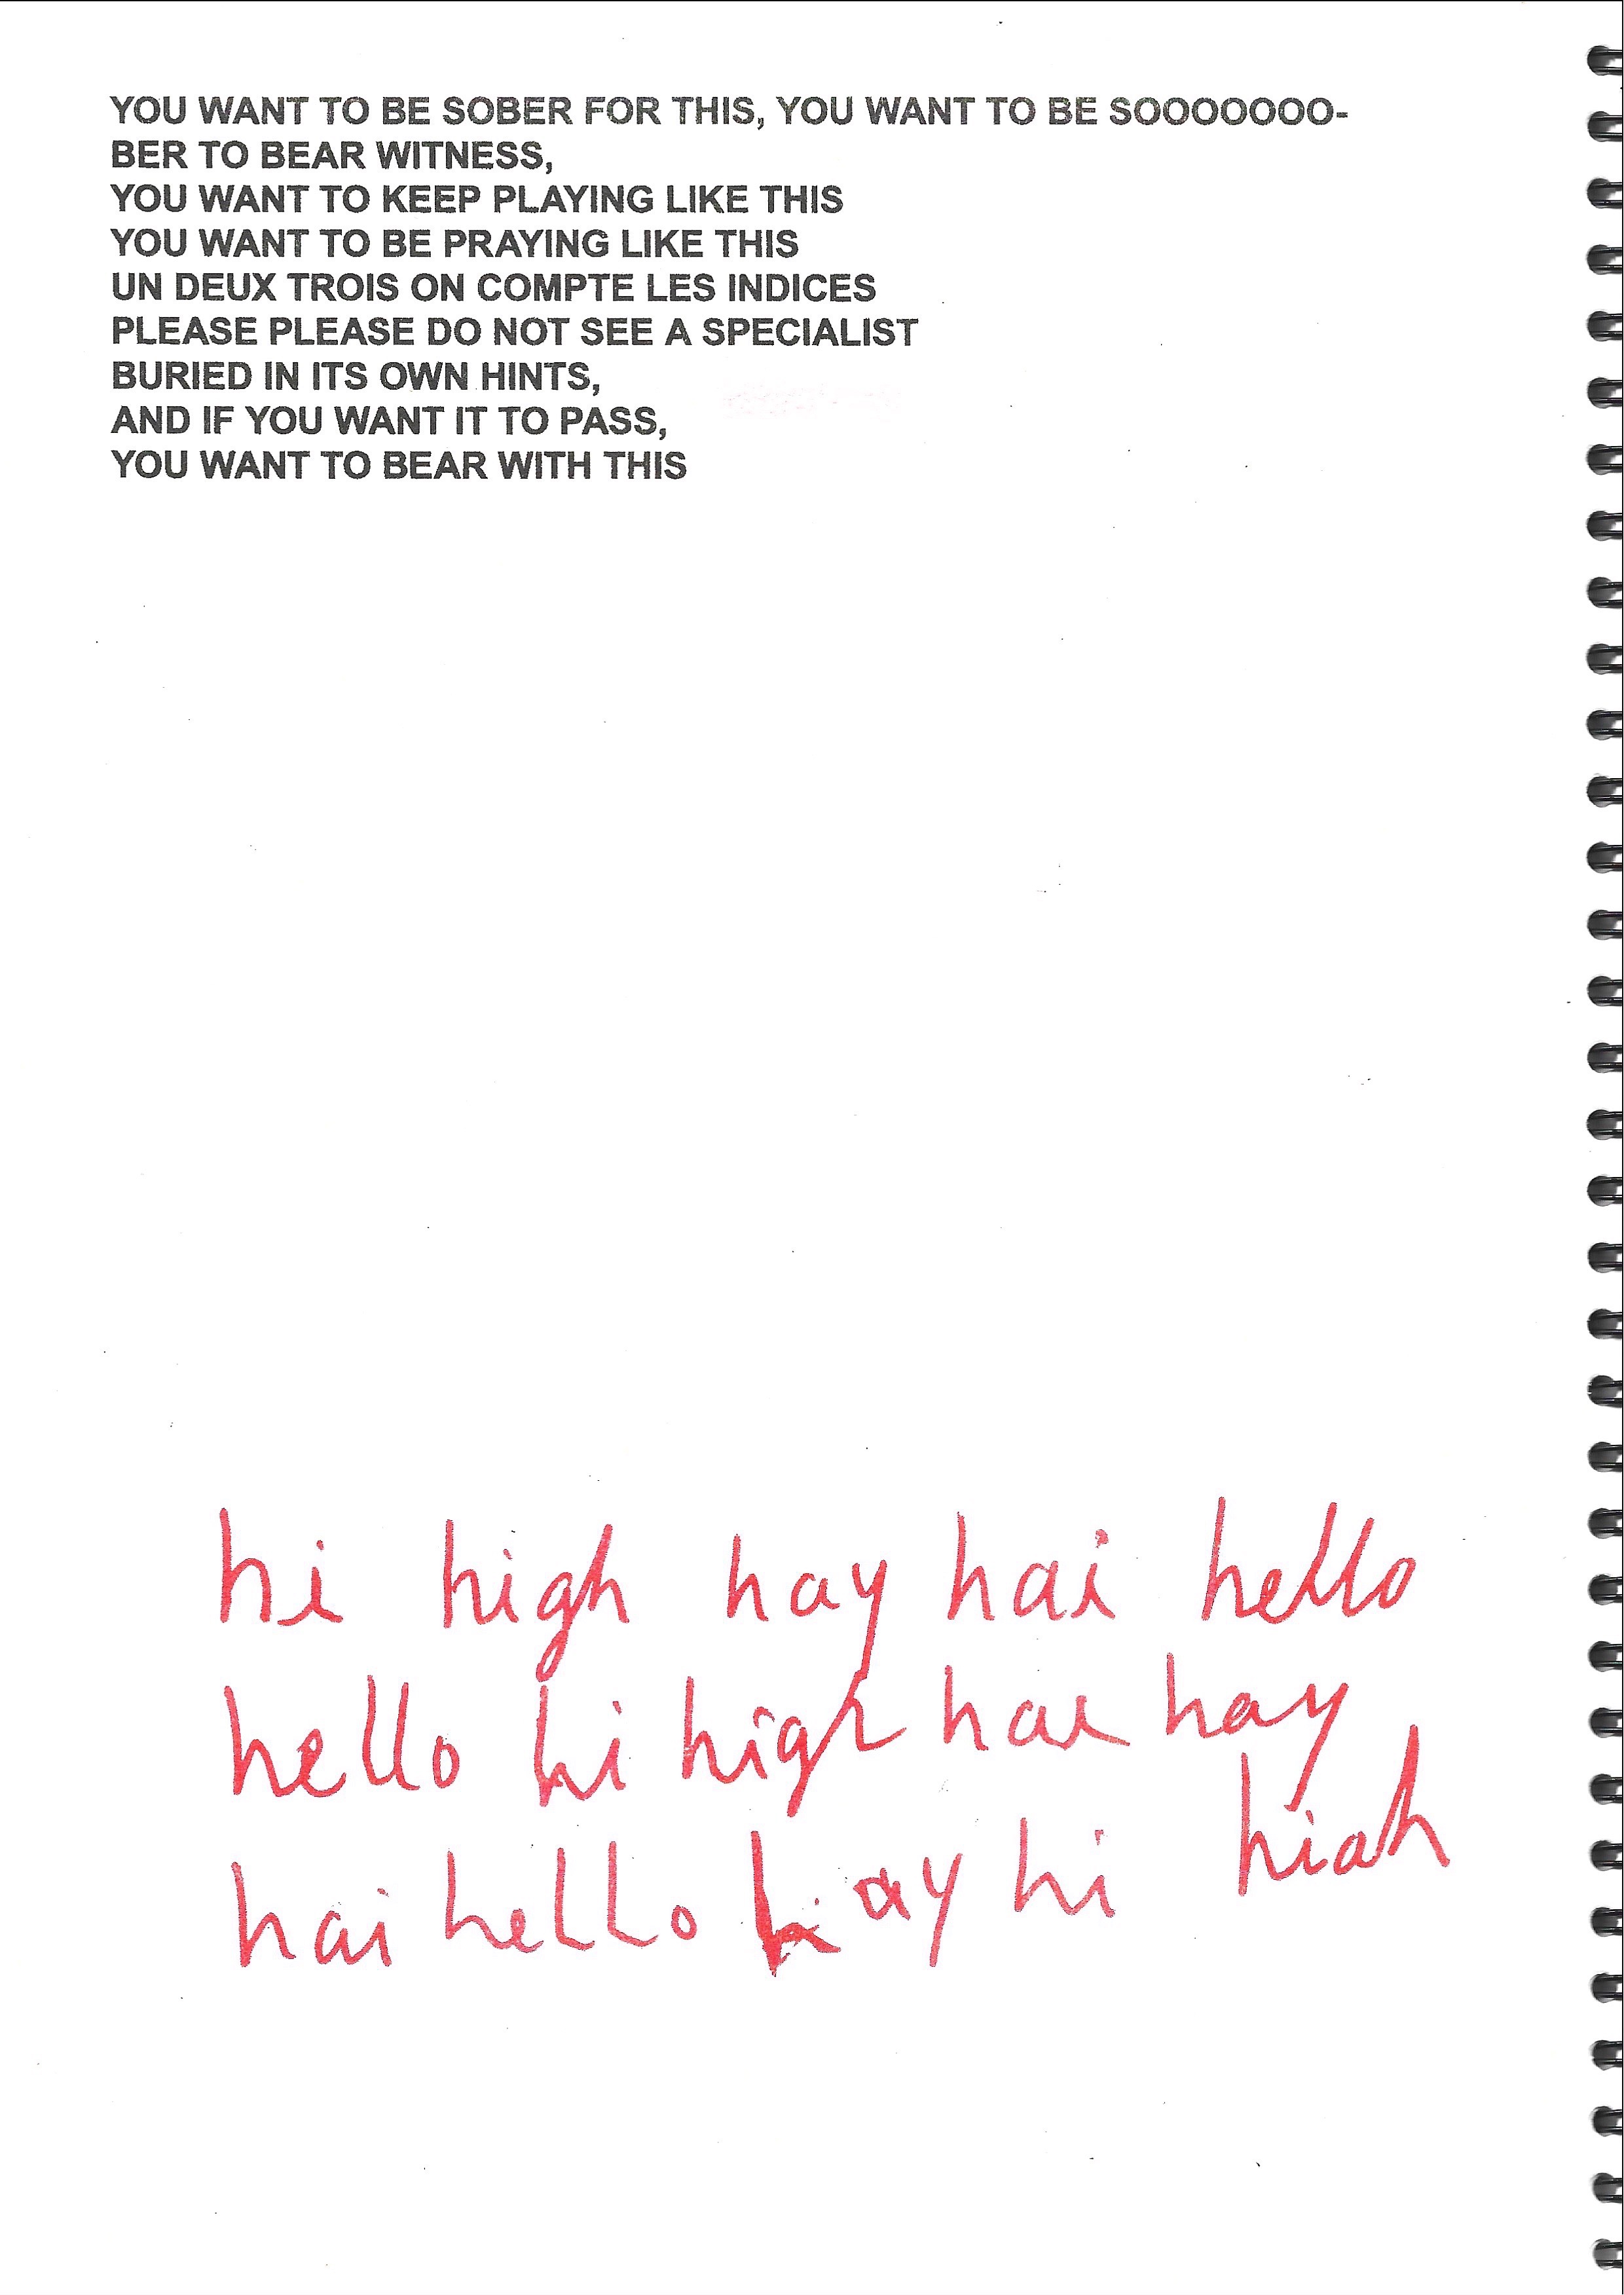 YOU WANT TO BE SOBER FOR THIS, YOU WANT TO BE SOOOOOOO-
BER TO BEAR WITNESS,
YOU WANT TO KEEP PLAYING LIKE THIS
YOU WANT TO BE PRAYING LIKE THIS
UN DEUX TROIS ON COMPTE LES INDICES
PLEASE PLEASE DO NOT SEE A SPECIALIST
BURIED IN ITS OWN HINTS,
AND IF YOU WANT IT TO PASS,
YOU WANT TO BEAR WITH THIS
hi high hay hai hello
hello hi high hai hay
hai hello hay hi